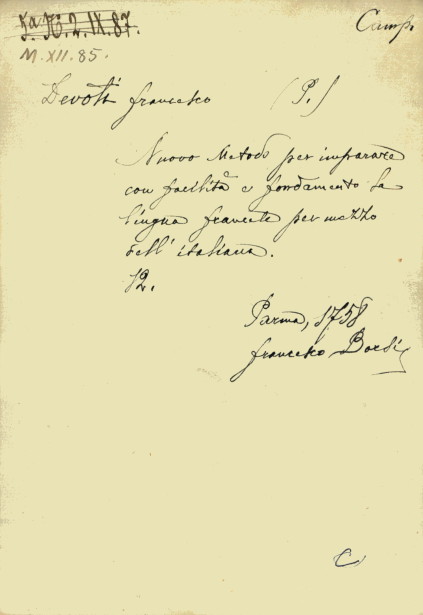 Camp.
M. XII. 85.
Devoti francesco (P.)
Nuovo Metodo per imparare
con facilità e fondamento la
lingua francese per mezzo
dell' italiana.
12.
Parma, 1758
francesco Borsi
C